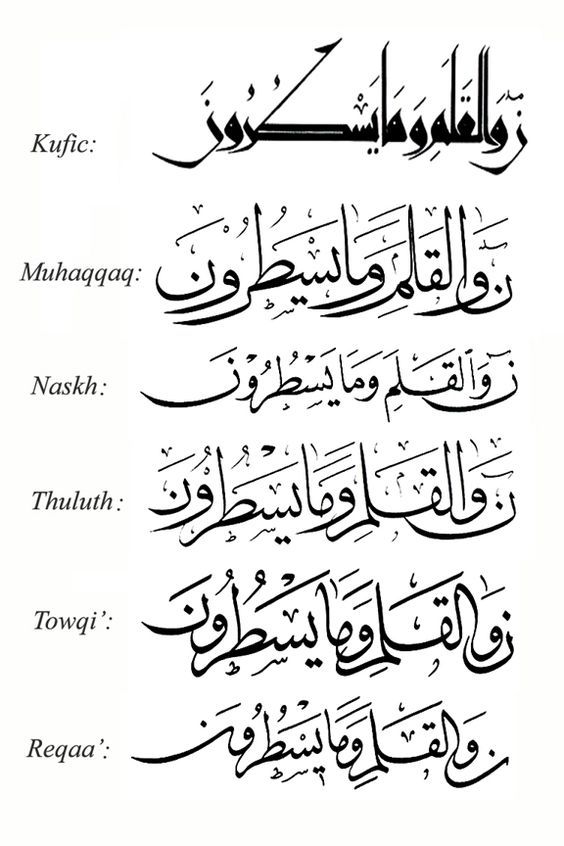 Kufic: ن وَالْقَلَمِ وَمَا يَسْطُرُونَ
Muhaqqaq: ن وَالْقَلَمِ وَمَا يَسْطُرُونَ
Naskh: ن وَالْقَلَمِ وَمَا يَسْطُرُونَ
Thuluth: ن وَالْقَلَمِ وَمَا يَسْطُرُونَ
Towqi': ن وَالْقَلَمِ وَمَا يَسْطُرُونَ
Reqaa': ن وَالْقَلَمِ وَمَا يَسْطُرُونَ